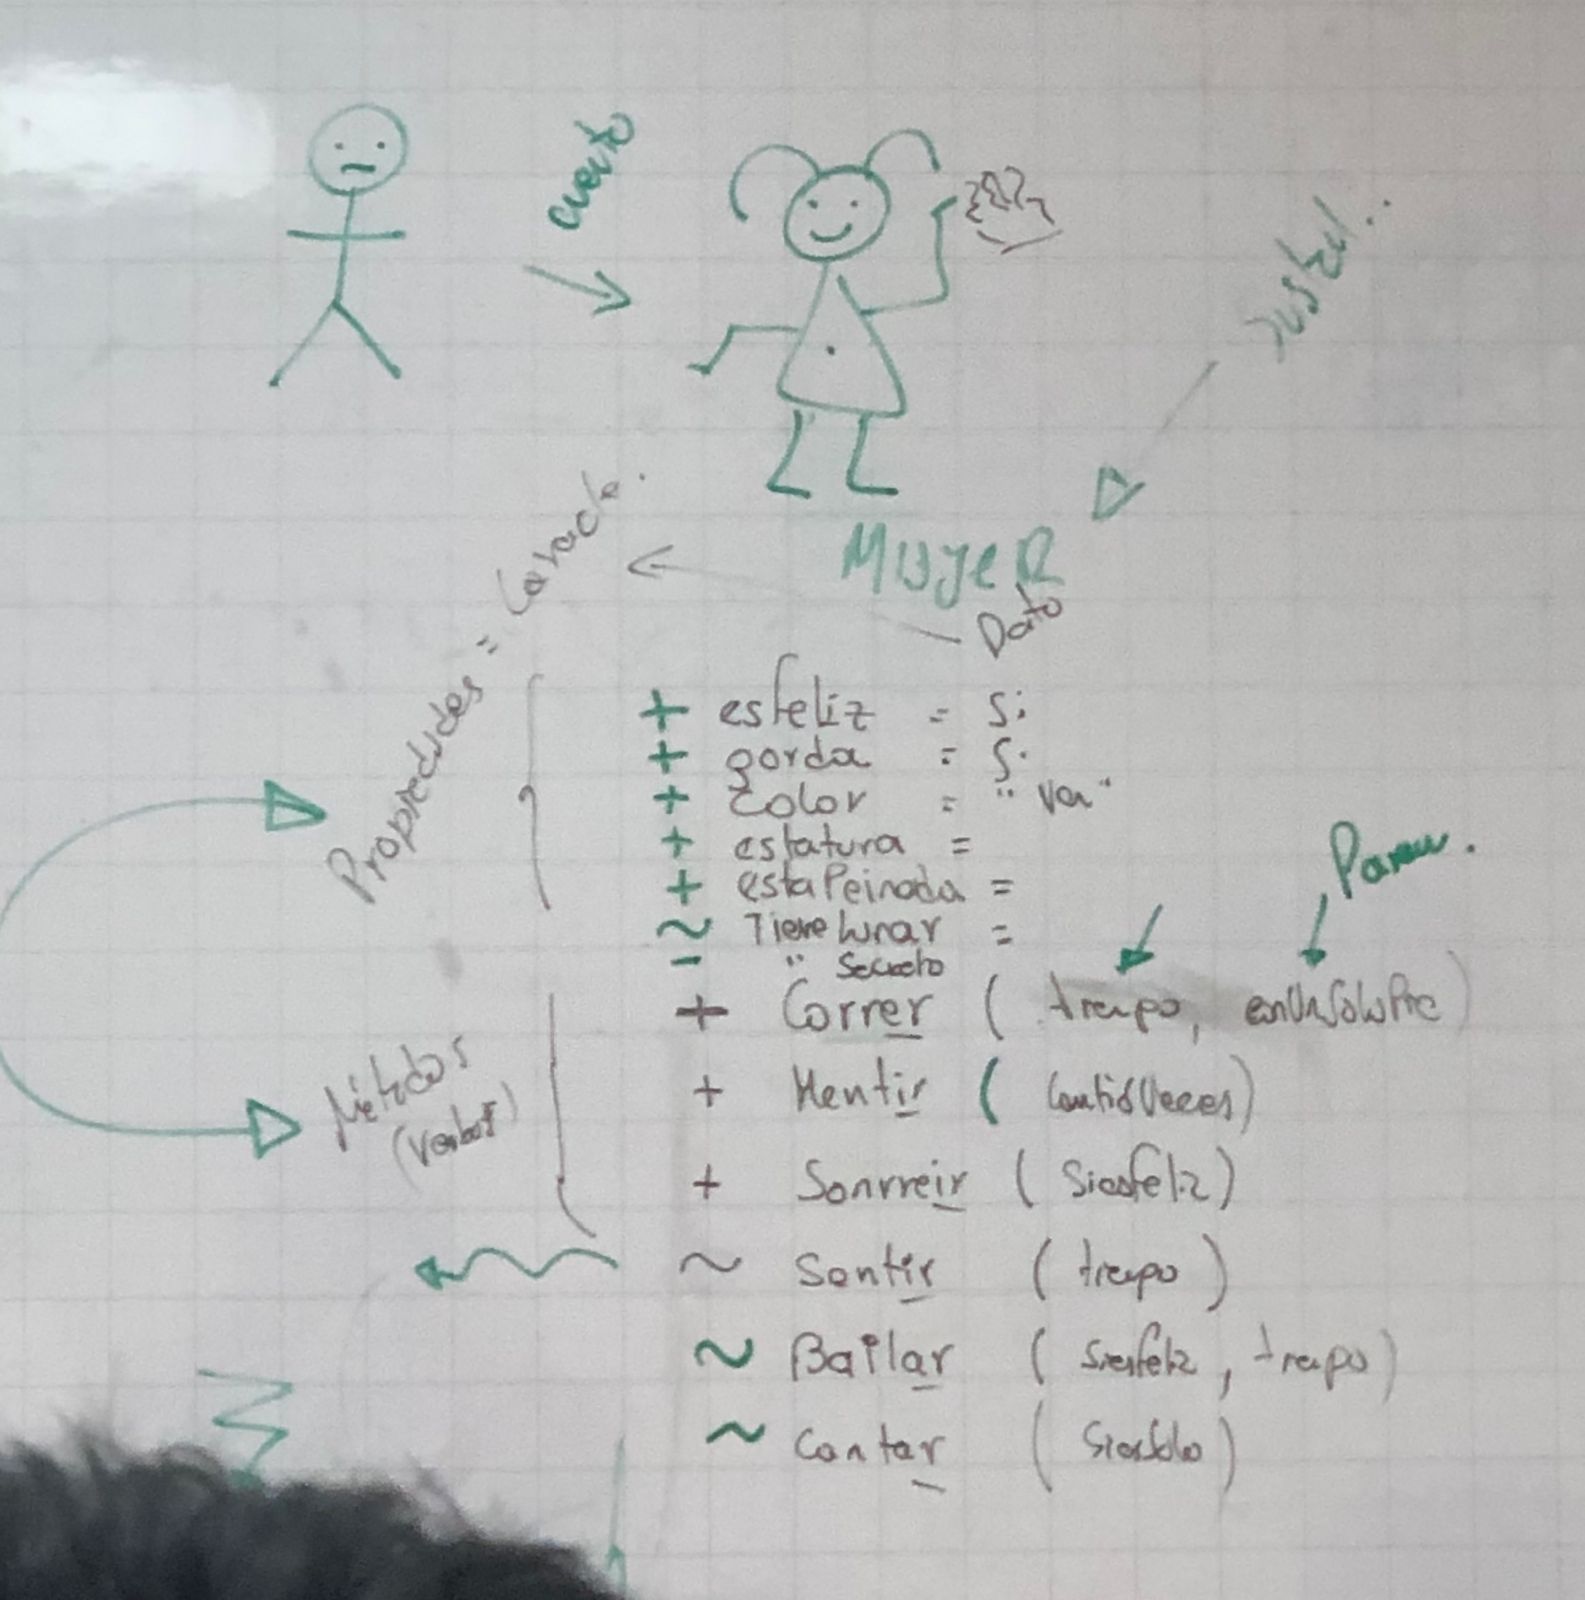 cuento
sustal..
MUJER
Dato
Propiedades = Caracte.
+ esfeliz = Si
+ gorda = Si
+ Color = "Ver"
+ estatura =
+ estaPeinada =
~ Tiene lunar =
- " Secreto
Param.
+ Correr ( tiempo, enUnSoloPie )
Métodos
(Verbos)
+ Mentir ( CantidVeces)
+ Sonrreir ( Siesfeliz)
~ Sentir ( tiempo )
~ Bailar ( Siesfeliz, tiempo)
~ Cantar ( )